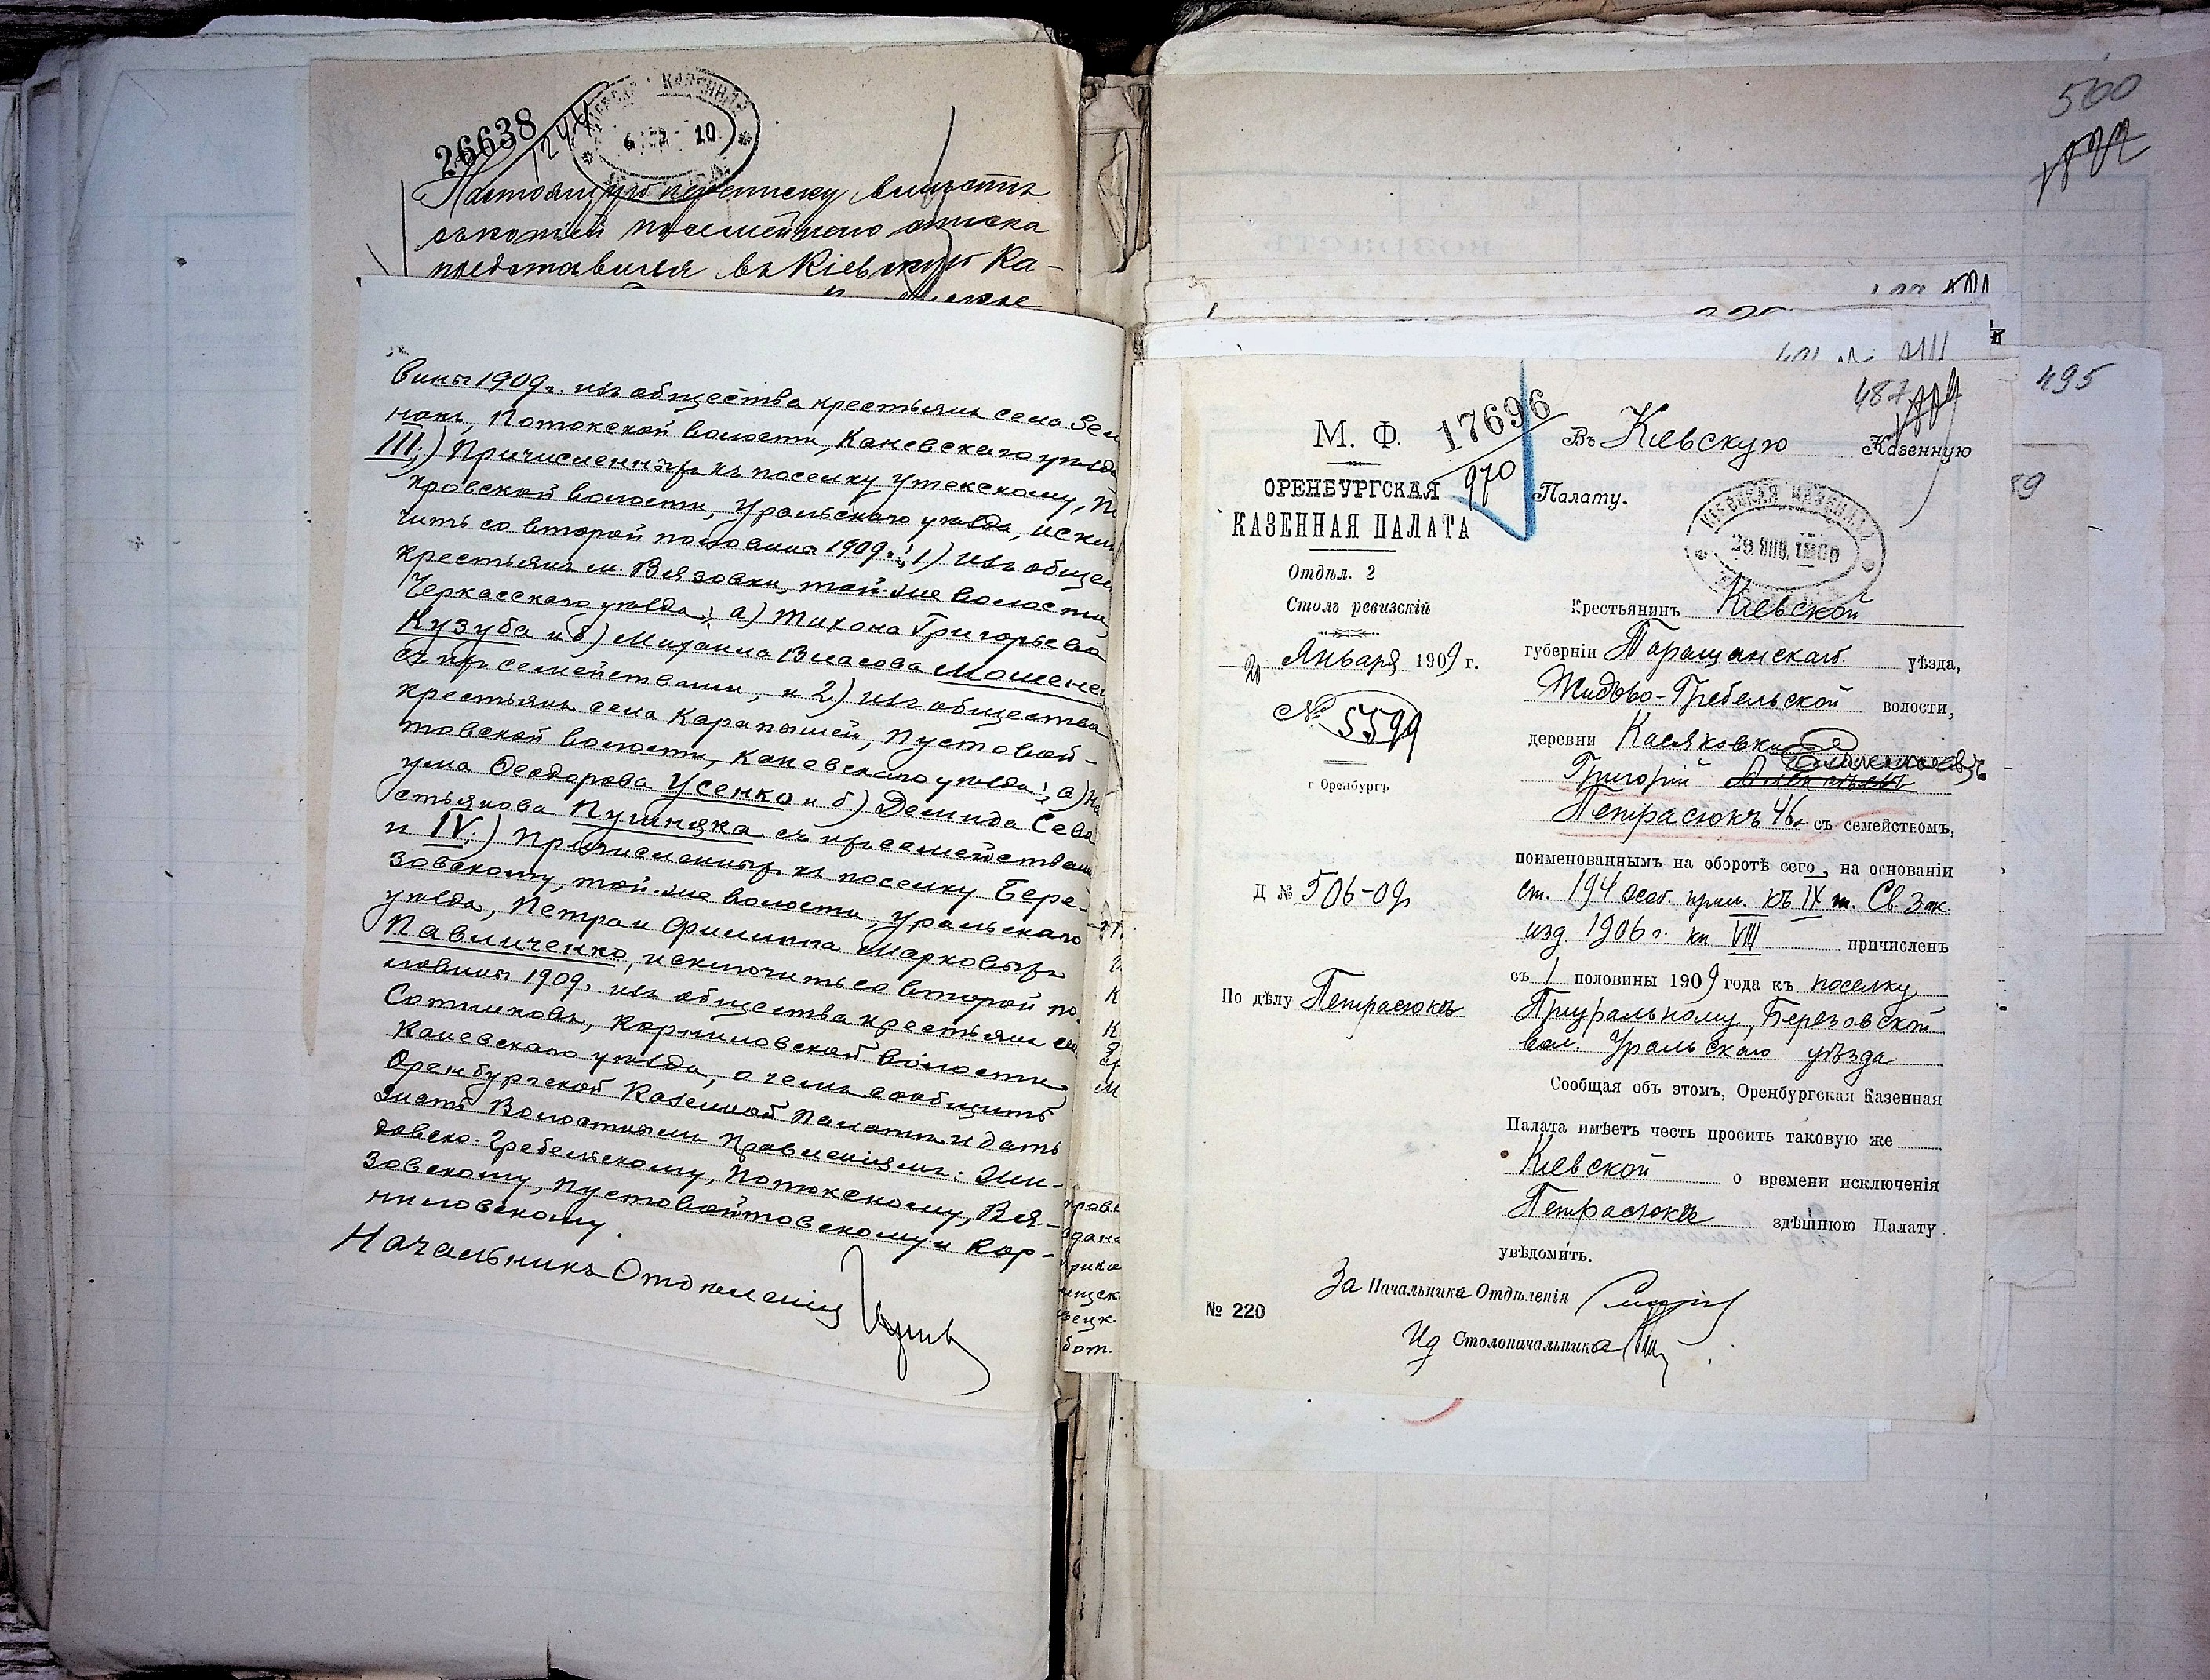 26638
1244
КІЕВСКАЯ КАЗЕННАЯ
10
Настоящую переписку вмѣстѣ
съ копіей посемейнаго списка
представилъ въ Кіевскую Ка-
вины 1909 г. изъ общества крестьянъ села
Потокской волости, Каневскаго уѣзда
III.) Причисленныхъ къ поселку Утекскому,
ровской волости, Уральскаго уѣзда,
чить со второй половины 1909 г.: 1) изъ общес
крестьянъ м. Вязовки, той-же волости
Черкасскаго уѣзда: а) Тихона Григорьева
Кузуба и б) Михаила Власова Мошене
съ ихъ семействами, и 2) изъ общества
крестьянъ села Карапышей, Пустовой-
товской волости, Каневскаго уѣзда: а) На
ума Ѳеодорова Усенко и б) Демида Сева
стьянова Пушняка съ ихъ семействами
и IV.) Причисленныхъ къ поселку Бере-
зовскому, той-же волости, Уральскаго
уѣзда, Петра и Филиппа Марковыхъ
Павличенко, исключить со второй по-
ловины 1909 г. изъ общества крестьянъ сел
Сотниковъ, Корниловской волости
Каневскаго уѣзда, о чемъ сообщить
Оренбургской Казенной Палатѣ и дать
знать Волостнымъ Правленіямъ: Жи-
довско-Гребельскому, Потокскому, Вя-
зовскому, Пустовойтовскому и Кор-
ниловскому.
Начальникъ Отдѣленія
500
495
487
М. Ф.
17696
970
ОРЕНБУРГСКАЯ
КАЗЕННАЯ ПАЛАТА
Отдѣл. 2
Столъ ревизскій
20 Января 1909 г.
№ 5599
г Оренбургъ
Д № 506-09
По дѣлу Петрасюкъ
№ 220
Въ Кіевскую Казенную
Палату.
КІЕВСКАЯ КАЗЕННАЯ
29 ЯНВ. 1909
Крестьянинъ Кіевской
губерніи Таращанскаго уѣзда,
Жидово-Гребельской волости,
деревни Касяковки
Григорій
Петрасюкъ 46 л. съ семействомъ,
поименованнымъ на оборотѣ сего, на основаніи
ст. 194 особ. прил. къ IX т. Св. Зак.
изд. 1906 г. кн VIII причисленъ
съ 1 половины 1909 года къ поселку
Приуральному, Березовской
вол. Уральскаго уѣзда
Сообщая объ этомъ, Оренбургская Казенная
Палата имѣетъ честь просить таковую же
Кіевской о времени исключенія
Петрасюкъ здѣшнюю Палату
увѣдомить.
За Начальника Отдѣленія
Ид Столоначальника